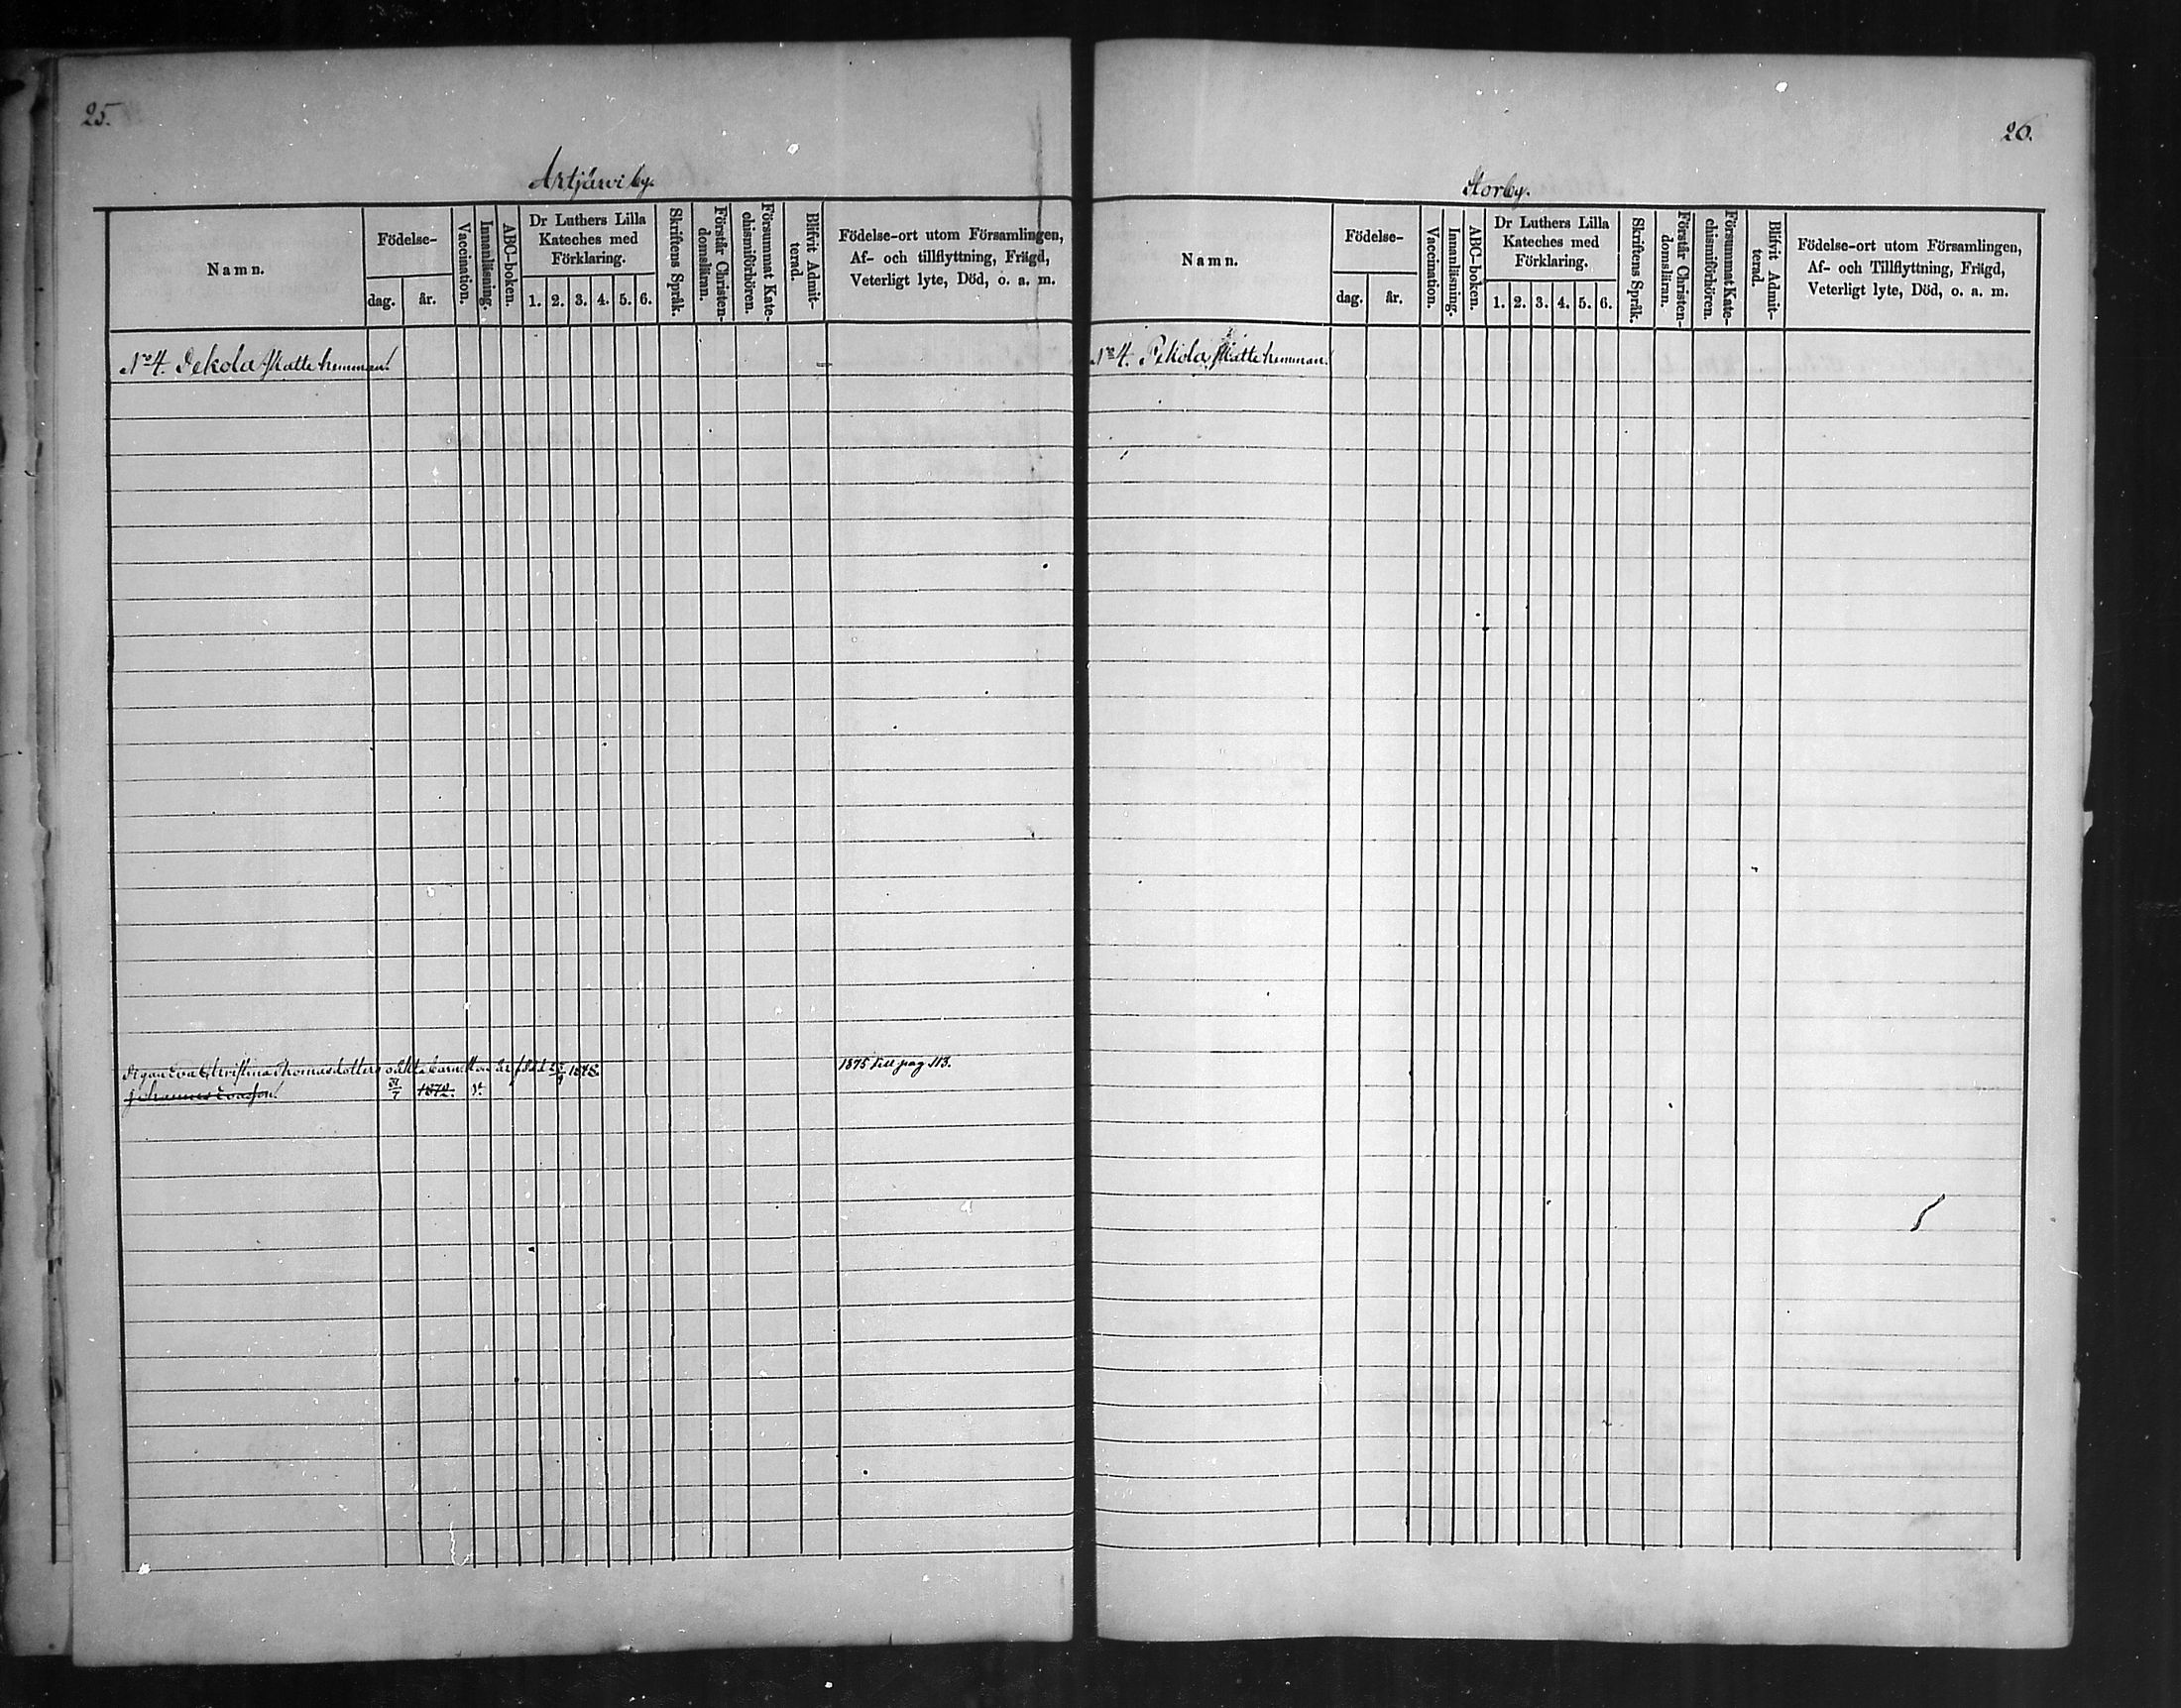 25.
Artjärvi by.
Namn.
Födelse-
dag. år.
Vaccination.
Innanläsning.
ABC-boken.
Dr Luthers Lilla
Kateches med
Förklaring.
1. 2. 3. 4. 5. 6.
Skriftens Språk.
Förstår Christen-
domsläran.
Försummat Kate-
chismiförhören.
Blifvit Admit-
terad.
Födelse-ort utom Församlingen,
Af- och tillflyttning, Frägd,
Veterligt lyte, Död, o. a. m.
No 4. Pekola Skatte hemman!
Pigan Eva Christina Thomasdotters oäkta barn 1875 till pag 113.
Johannes Evasson! 31/7 1872.
26.
Storby.
Namn.
Födelse-
dag. år.
Vaccination.
Innanläsning.
ABC-boken.
Dr Luthers Lilla
Kateches med
Förklaring.
1. 2. 3. 4. 5. 6.
Skriftens Språk.
Förstår Christen-
domsläran.
Försummat Kate-
chismiförhören.
Blifvit Admit-
terad.
Födelse-ort utom Församlingen,
Af- och Tillflyttning, Frägd,
Veterligt lyte, Död, o. a. m.
No 4. Pekola Skatte hemman!